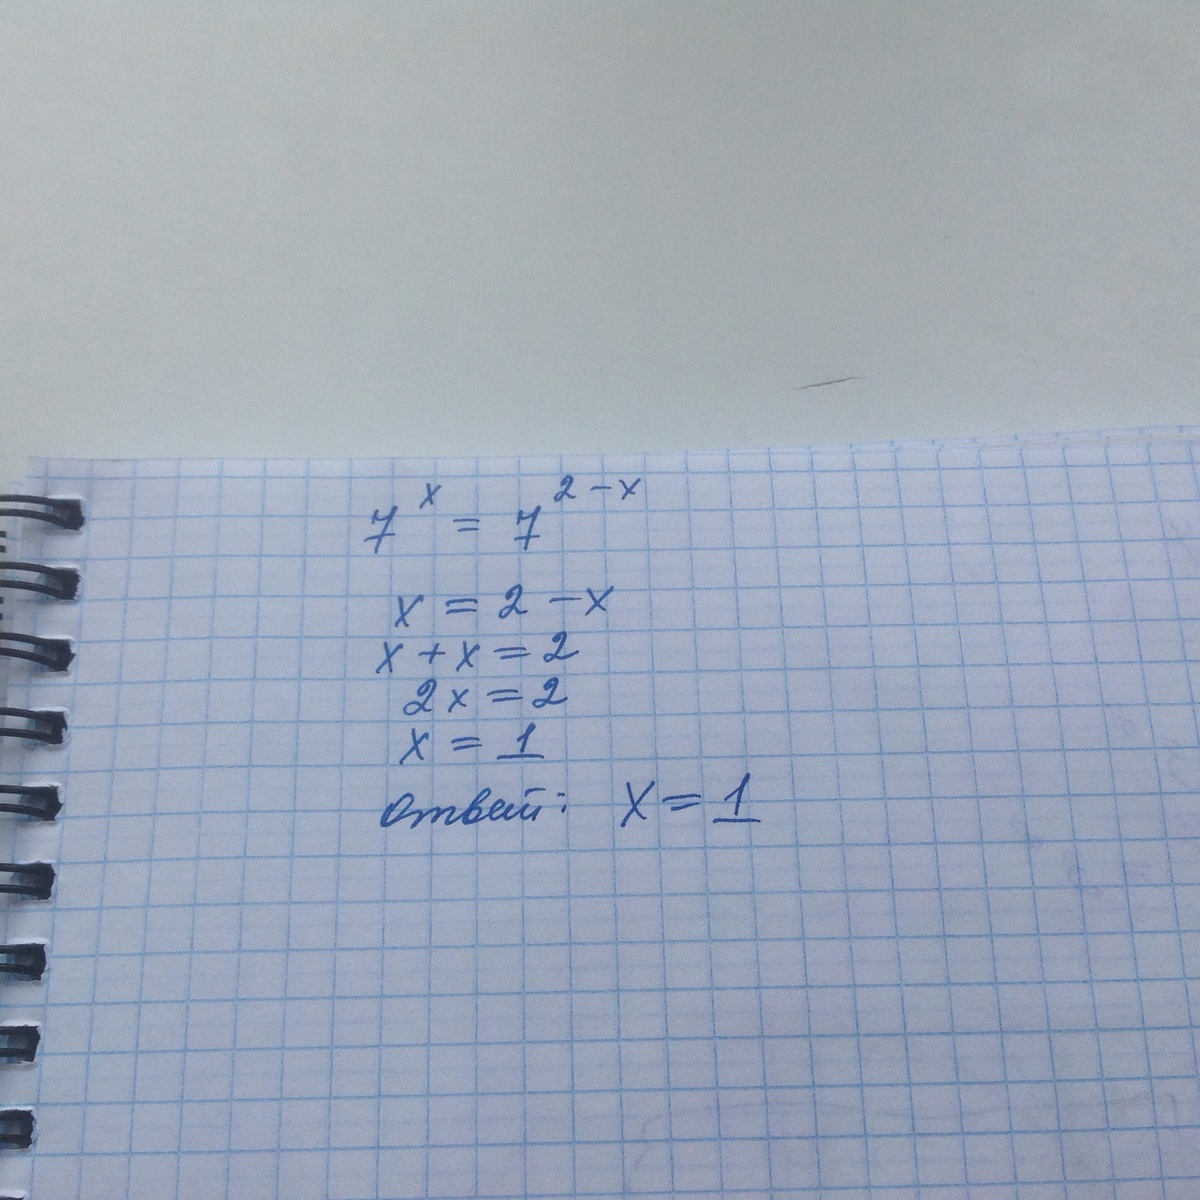 7^x = 7^(2-x)
x = 2 - x
x + x = 2
2x = 2
x = 1
Ответ: x = 1